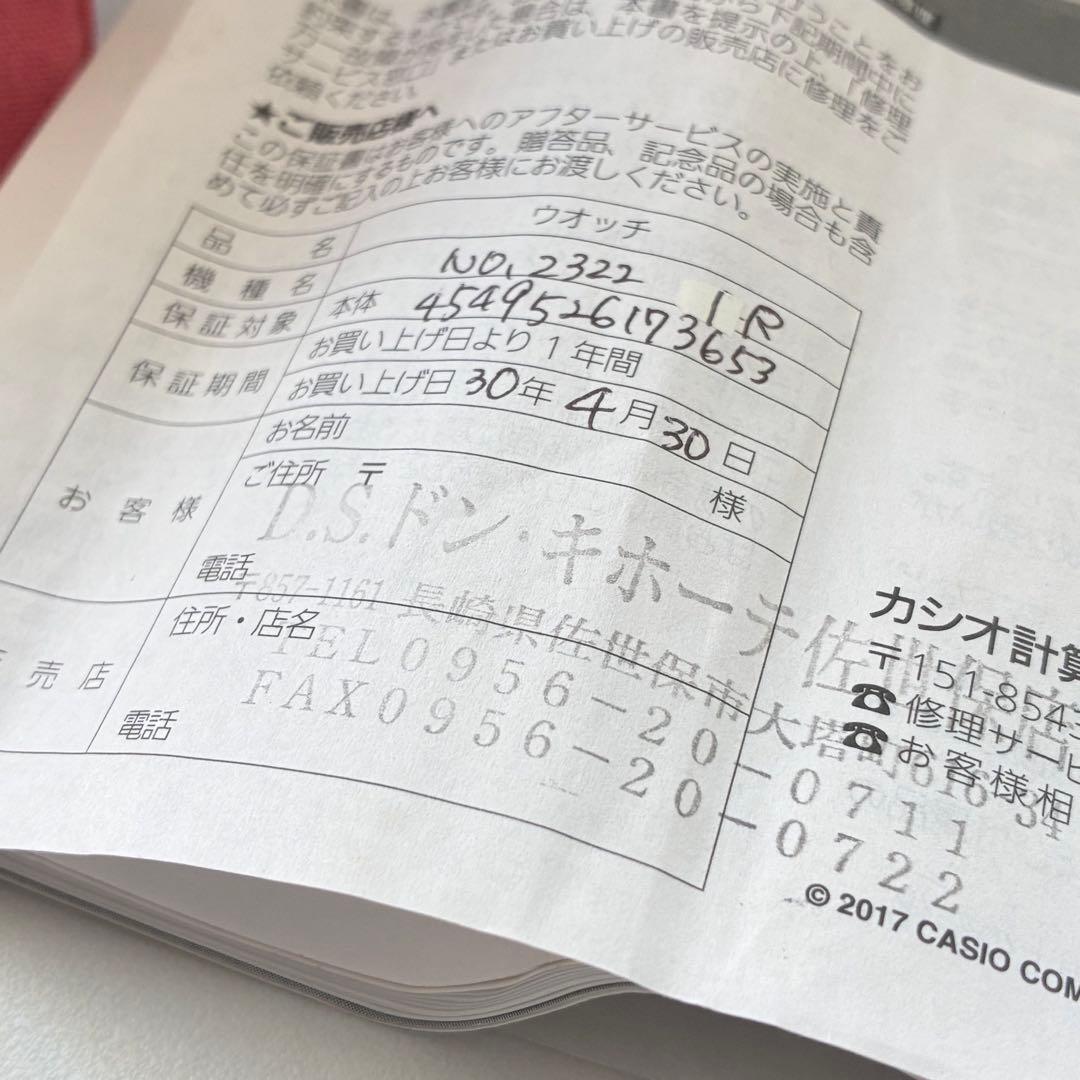 うことをお
から下記期間中に
た場合は、本書を提示の上、「修理
サービス窓口」またはお買い上げの販売店に修理をご
依頼ください
★ご販売店様へ
この保証書はお客様へのアフターサービスの実施と責
任を明確にするものです。贈答品、記念品の場合も含
めて必ずご記入の上お客様にお渡しください。
品名 ウオッチ
機種名 NO.2322 1R
保証対象 本体 4549526173653
保証期間 お買い上げ日より1年間
お買い上げ日 30年 4月 30日
お客様 お名前 様
ご住所 〒
電話
売店 住所・店名
電話
D.S.ドン・キホーテ佐世保店
〒857-1161 長崎県佐世保市大塔町616-34
TEL0956-20-0711
FAX0956-20-0722
カシオ計算
〒151-8543
☎修理サービ
☎お客様相
© 2017 CASIO COM